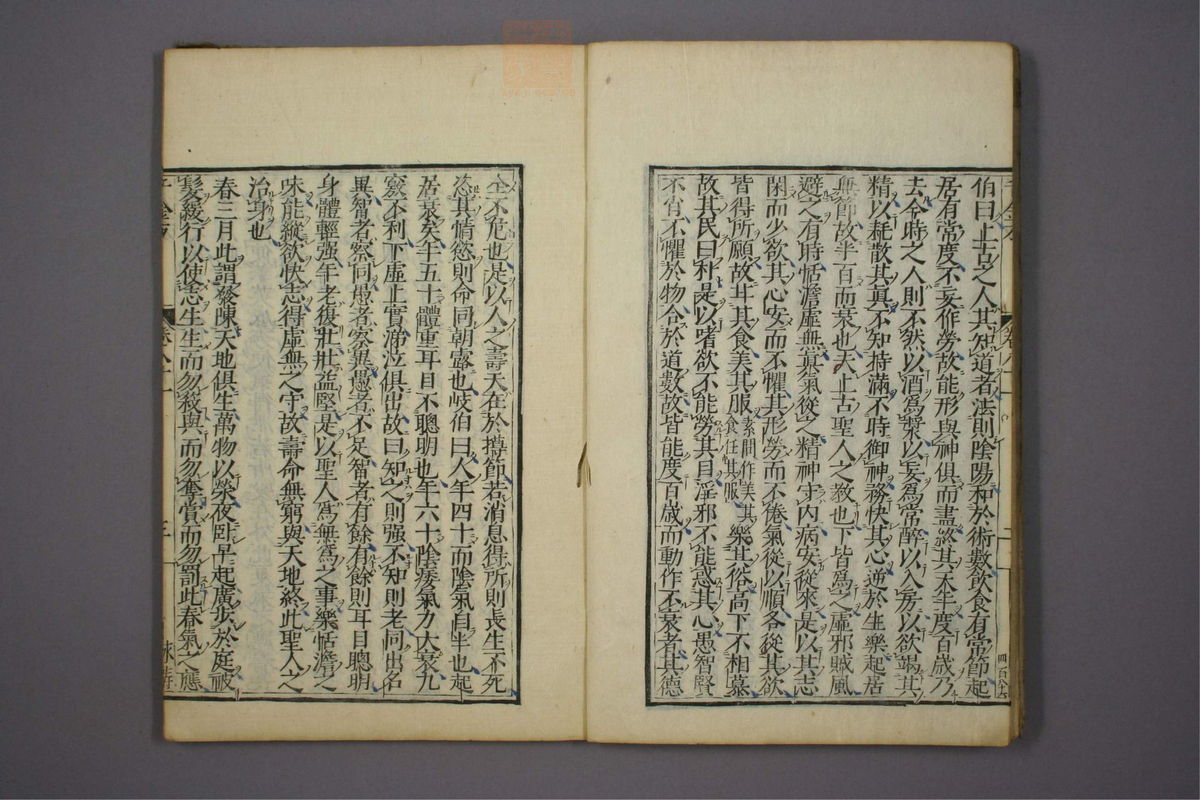 伯曰上古之人其知道者法則陰陽和於術數飲食有常節起
居有常度不妄作勞故能形與神俱而盡終其天年度百歲乃
去今時之人則不然以酒為漿以妄為常醉以入房以欲竭其
精以耗散其真不知持滿不時御神務快其心逆於生樂起居
無節故半百而衰也夫上古聖人之教也下皆為之虛邪賊風
避之有時恬澹虛無真氣從之精神守內病安從來是以其志
閑而少欲其心安而不懼其形勞而不倦氣從以順各從其欲
皆得所願故甘其食美其服素問作美其食任其服樂其俗高下不相慕
故其民曰朴是以嗜欲不能勞其目淫邪不能惑其心愚智賢
不肖不懼於物合於道數故皆能度百歲而動作不衰者其德
四百八十六
全不危也是以人之壽夭在於撙節若消息得所則長生不死
恣其情慾則命同朝露也岐伯曰人年四十而陰氣自半也起
居衰矣年五十體重耳目不聰明也年六十陰痿氣力大衰九
竅不利下虛上實涕泣俱出故曰知之則强不知則老同出名
異智者察同愚者察異愚者不足智者有餘有餘則耳目聰明
身體輕强年老復壯壯益堅是以聖人為無為之事樂恬澹之
味能縱欲快志得虛無之守故壽命無窮與天地終此聖人之
治身也
春三月此謂發陳天地俱生萬物以榮夜臥早起廣步於庭被
髮緩行以使志生生而勿殺與而勿奪賞而勿罰此春氣之應